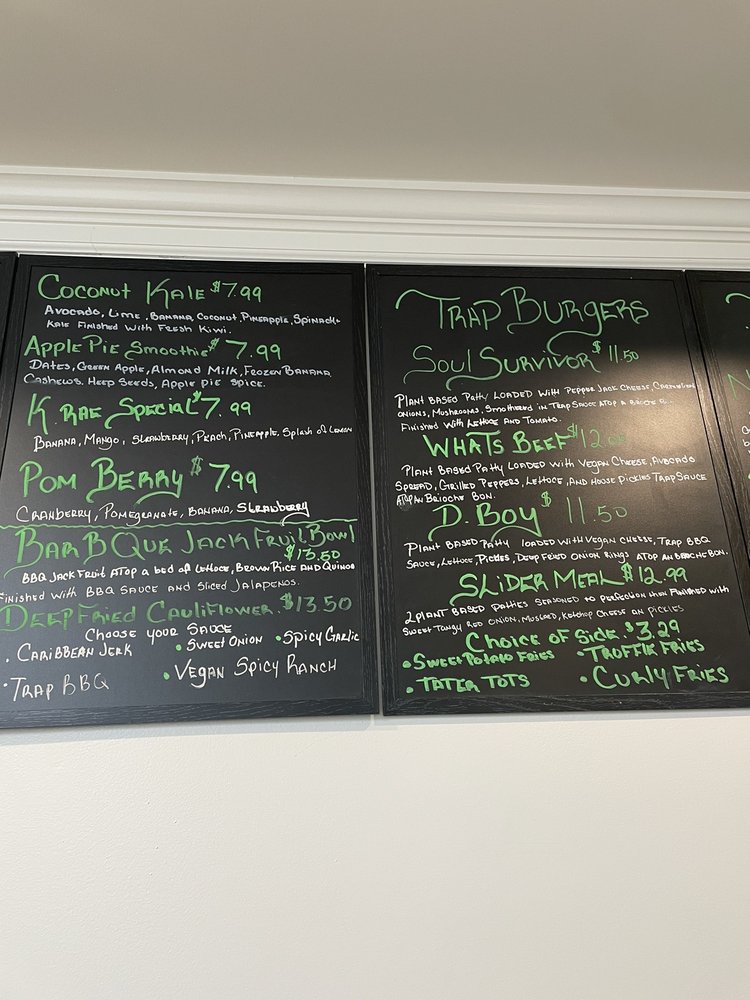 Coconut Kale $7.99
Avocado, Lime, Banana, Coconut, Pineapple, Spinach +
Kale Finished With Fresh Kiwi.
Apple Pie Smoothie $7.99
Dates, Green Apple, Almond Milk, Frozen Banana
Cashews, Heep Seeds, Apple pie spice.
K. Rae Special $7.99
Banana, Mango, Strawberry, Peach, Pineapple, Splash of Lemon
Pom Berry $7.99
Cranberry, Pomegranate, Banana, Strawberry
Bar B Que Jack Fruit Bowl
$13.50
BBQ Jack Fruit atop a bed of Lettuce, Brown Rice and Quinoa
Finished with BBQ Sauce and Sliced Jalapenos.
Deep Fried Cauliflower $13.50
Choose your Sauce
• Caribbean Jerk • Sweet Onion • Spicy Garlic
• Trap BBQ • Vegan Spicy Ranch
Trap Burgers
Soul Survivor $11.50
Plant Based Patty Loaded with Pepper Jack Cheese,
Onions, Mushrooms, Smothered in Trap Sauce atop a
Finished with Lettuce and Tomato.
Whats Beef $12.
Plant Based Patty Loaded with Vegan Cheese, Avocado
Spread, Grilled Peppers, Lettuce, and House Pickles Trap Sauce
atop an Brioche Bon.
D. Boy $11.50
Plant Based Patty Loaded with Vegan Cheese, Trap BBQ
Sauce, Lettuce, Pickles, Deep Fried Onion Rings atop an Brioche Bon.
Slider Meal $12.99
2 Plant Based Patties Seasoned to perfection then Finished with
Sweet Tangy Red Onion, Mustard, Ketchup Cheese an pickles
Choice of Side $3.29
• Sweet Potato Fries • Truffle Fries
• Tater Tots • Curly Fries